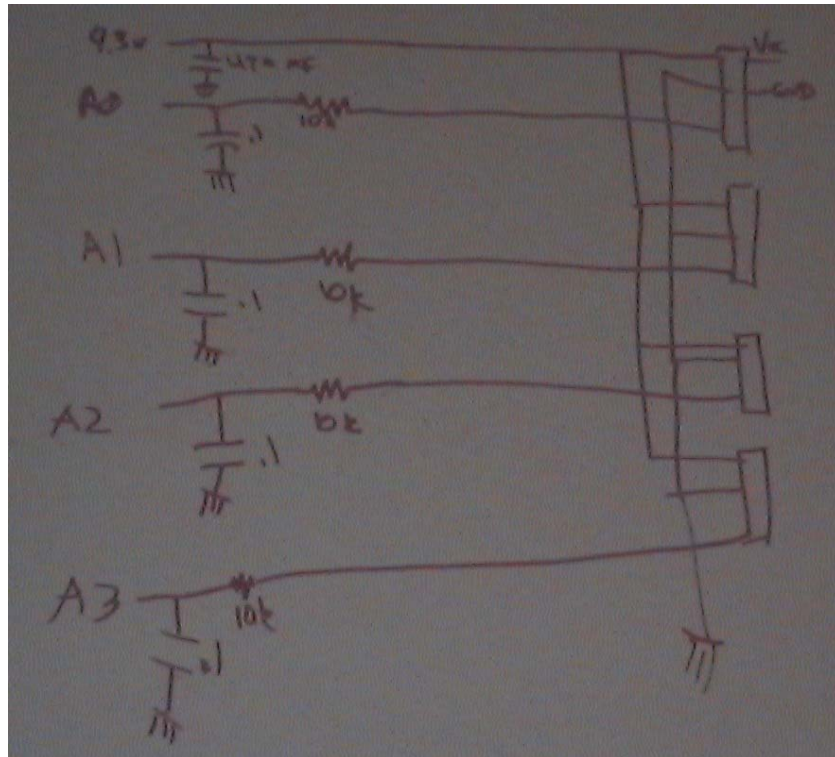 9.3v
Vcc
GND
A0
.1
10k
A1
.1
10k
A2
.1
10k
A3
.1
10k